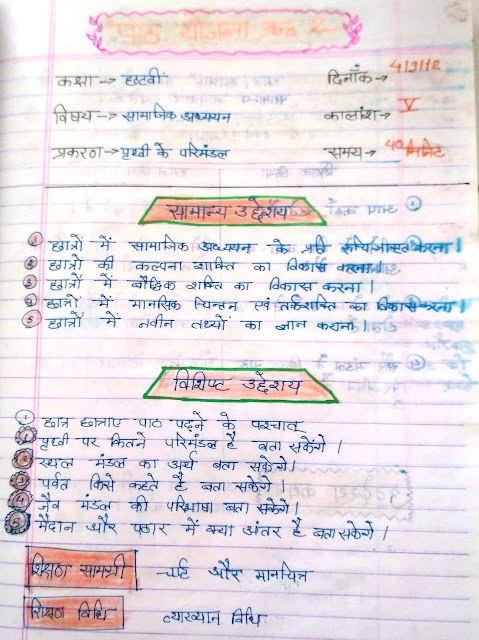 पाठ योजना क्र० 2
कक्षा → छटवीं दिनाँक → 4/9/12
विषय → सामाजिक अध्ययन कालांश → V
प्रकरण → पृथ्वी के परिमंडल समय → 40 मिनेट
सामान्य उद्देशय
1 छात्रों में सामाजिक अध्ययन के प्रति करना।
2 छात्रों की कल्पना शक्ति का विकास करना।
3 छात्रों में बौद्धिक शक्ति का विकास करना।
4 छात्रों में मानसिक चिन्तन एवं तर्कशक्ति का विकास करना।
5 छात्रों में नवीन तथ्यों का ज्ञान कराना।
विशिष्ट उद्देशय
छात्र छात्राए पाठ पढ़ने के पश्चात
1 पृथ्वी पर कितने परिमंडल है बता सकेंगे।
2 स्थल मंडल का अर्थ बता सकेगे।
3 पर्वत किसे कहते है बता सकेंगे।
4 जैव मंडल की परिभाषा बता सकेगे।
5 मैदान और पठार में क्या अंतर है बता सकेगे।
शिक्षण सामग्री - चार्ट और मानचित्र
शिक्षण विधि व्याख्यान विधि